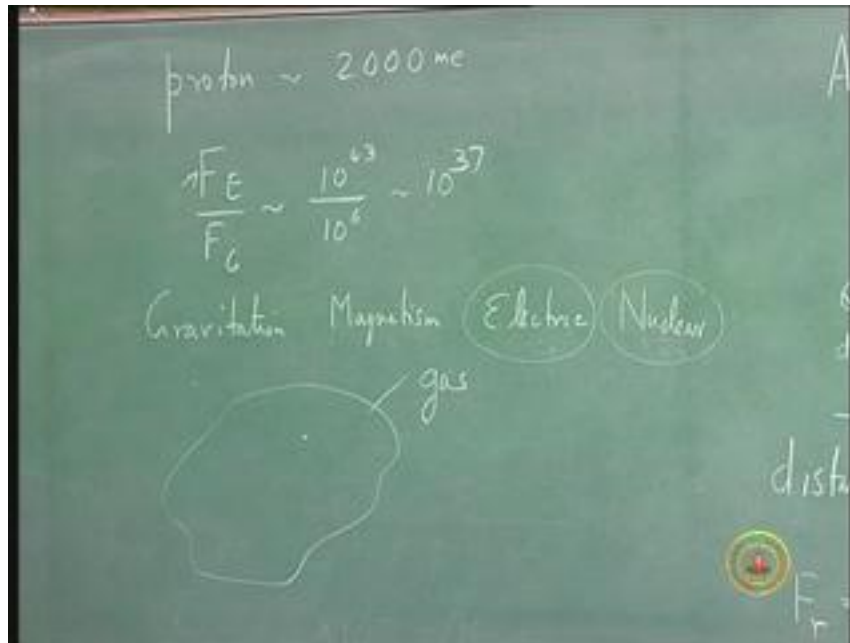 proton ~ 2000 me
A
F_E / F_G ~ 10^43 / 10^6 ~ 10^37
Gravitation Magnetism Electric Nuclear
gas
F_r =